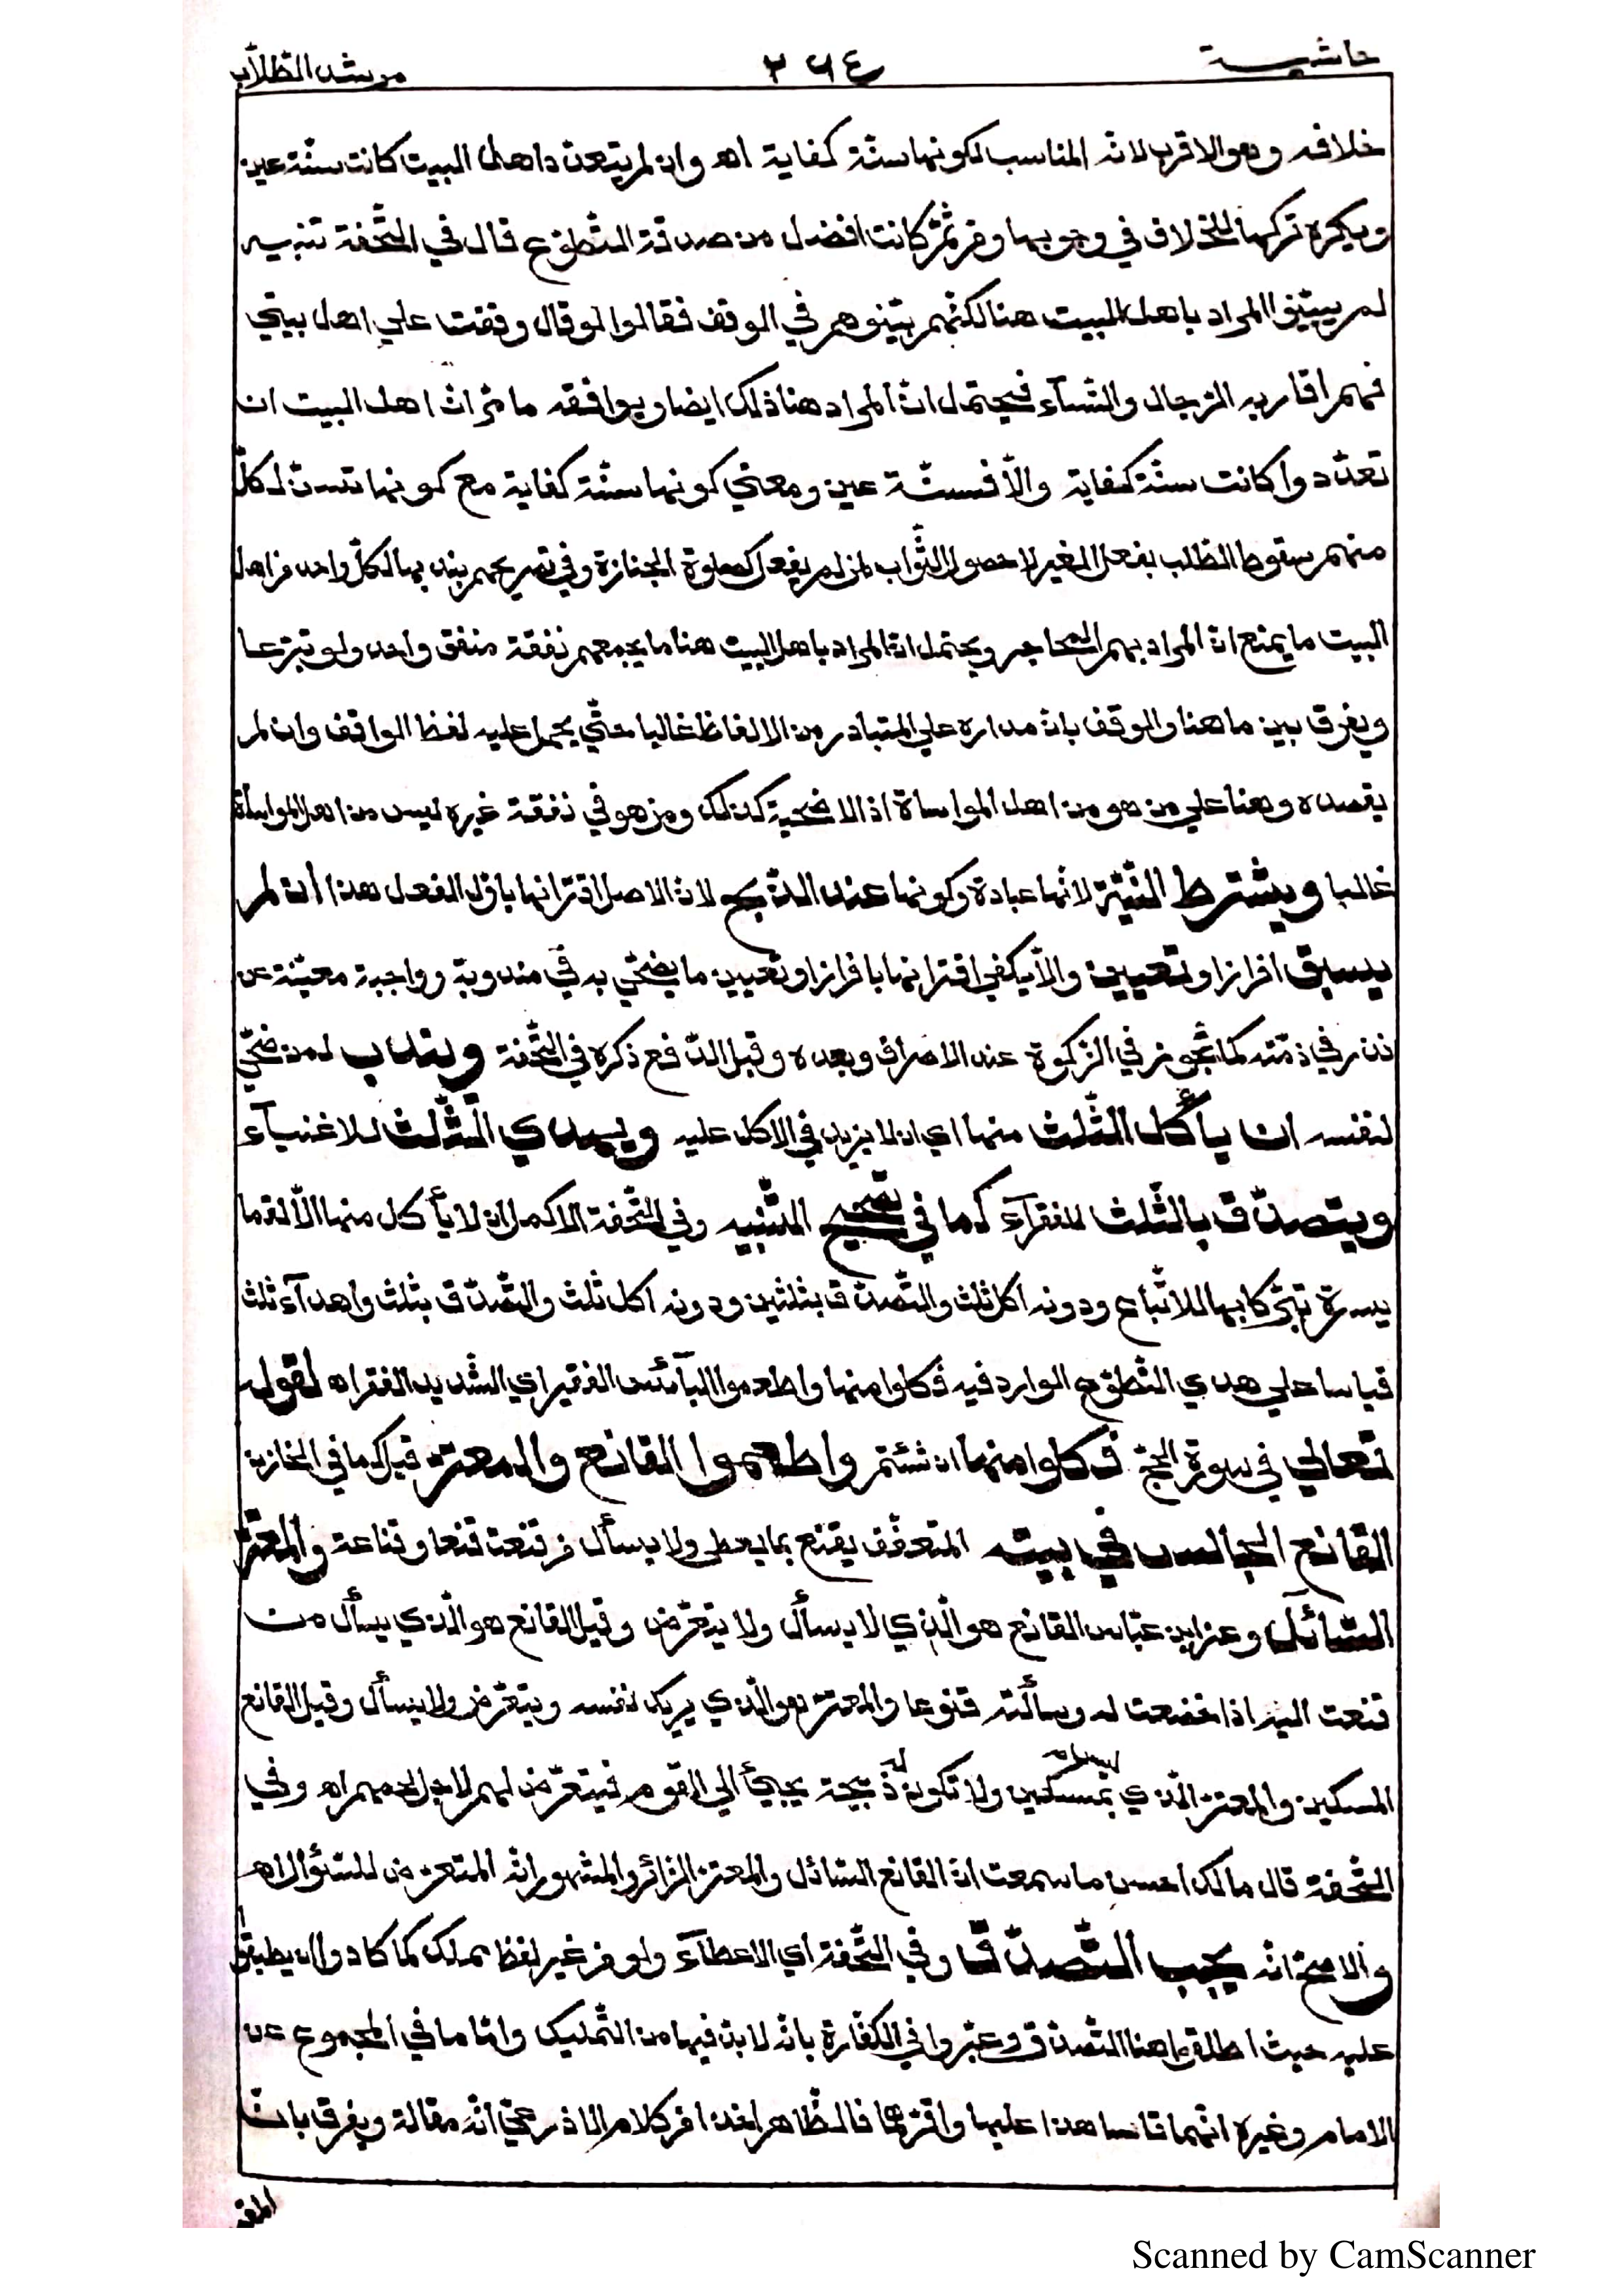 حاشية ٢٦٤ مرشد الطلّاب
خلافه وهو الاقرب لانه المناسب لكونها سنّة كفاية اه وان لم يتعدّد اهل البيت كانت سنّة عين
ويكره تركها للخلاف في وجوبها ومن ثمّ كانت افضل من صدقة التّطوّع قال في التّحفة تنبيه
لم يبيّنوا المراد باهل البيت هنا لكنّهم بيّنوهم في الوقف فقالوا لو قال وقفت علي اهل بيتي
فهم اقاربه الرّجال والنّسآء فيحتمل انّ المراد هنا ذلك ايضا ويوافقه ما مرّ انّ اهل البيت ان
تعدّدوا كانت سنّة كفاية والّا فسنّة عين ومعني كونها سنّة كفاية مع كونها تسنّ لكلّ
منهم سقوط الطّلب بفعل الغير لا حصول الثّواب لمن لم يفعل كصلوة الجنازة وفي تصريحهم بندبها لكلّ واحد من اهل
البيت ما يمنع انّ المراد بهم المحاجير ويحتمل انّ المراد باهل البيت هنا ما يجمعهم نفقة منفق واحد ولو تبرّعا
ويفرق بين ما هنا والوقف بانّ مداره علي المتبادر من الالفاظ غالبا حتّي يحمل عليه لفظ الواقف وان لم
يقصده وهنا علي من هو من اهل المواساة اذ الاضحية كذلك ومن هو في نفقة غيره ليس من اهل المواساة
غالبا ويشترط النّيّة لانّها عبادة وكونها عند الذّبح لانّ الاصل اقترانها باوّل الفعل هذا ان لم
يسبق افراز او تعيين والّا يكفي اقترانها بافراز او تعيين ما يضحّي به في مندوبة وواجبة معيّنة عن
نذر في ذمّته كما تجوز في الزّكوة عند الافراز وبعده وقبل الدّفع ذكره في التّحفة ويندب لمن ضحّي
لنفسه ان يأكل الثّلث منها اي ان لا يزيد في الاكل عليه ويهدي الثّلث للاغنيآء
ويتصدّق بالثّلث للفقرآء كما في تصحيح التّنبيه وفي التّحفة الاكمل ان لا يأكل منها الّا لقما
يسيرة تبرّكا بها للاتّباع ودونه اكل ثلث والتّصدّق بثلثين ودونه اكل ثلث والتّصدّق بثلث واهدآء ثلث
قياسا علي هدي التّطوّع الوارد فيه فكلوا منها واطعموا البآئس الفقير اي الشّديد الفقر اه لقوله
تعالي في سورة الحجّ فكلوا منها ان شئتم واطعموا القانع والمعترّ قيل كما في الخازن
القانع الجالس في بيته المتعفّف يقنع بما يعطي ولا يسأل من قنعت قنعا وقناعة والمعترّ
السّآئل وعن ابن عبّاس القانع هو الّذي لا يسأل ولا يتعرّض وقيل القانع هو الّذي يسأل من
قنعت اليه اذا خضعت له وسألته قنوعا والمعترّ هو الّذي يريك نفسه ويتعرّض ولا يسأل وقيل القانع
المسكين والمعترّ الّذي ليس بمسكين ولا تكون له ذبيحة يجيئ الي القوم فيتعرّض لهم لاجل لحمهم اه وفي
التّحفة قال مالك احسن ما سمعت انّ القانع السّائل والمعترّ الزّائر والمشهور انّه المتعرّض للسّؤال اه
والاصحّ انّه يجب التّصدّق وفي التّحفة اي الاعطآء ولو من غير لفظ مملّك كما كادوا ان يطبقوا
عليه حيث اطلقوا هنا التّصدّق وعبّروا في الكفّارة بانّه لا بدّ فيها من التّمليك وامّا ما في المجموع عن
الامام وغيره انّهما قاسا هذا عليها واقرّهما فالظّاهر اخذا من كلام الاذرعيّ انّه مقالة ويفرق بانّ
Scanned by CamScanner